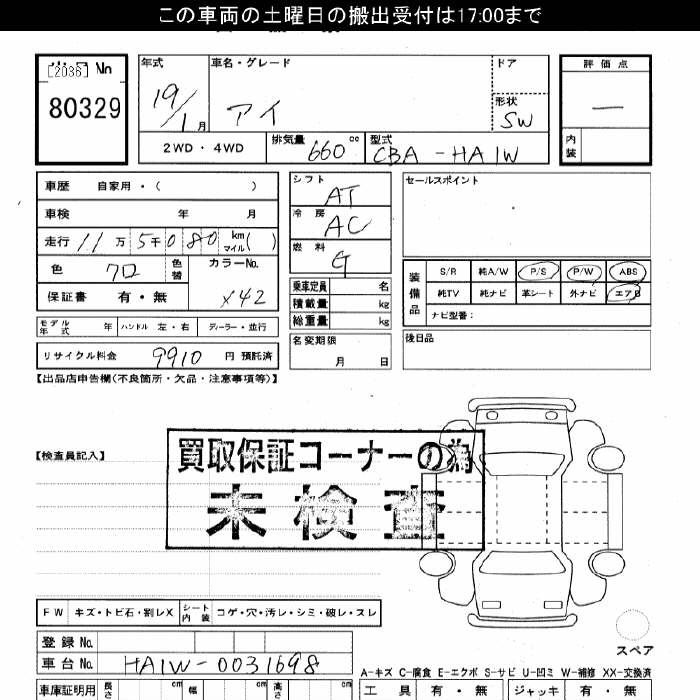 この車両の土曜日の搬出受付は17:00まで
[2036] No
80329
年式 19/1月
車名・グレード アイ
ドア
形状 SW
評価点 —
内装
2WD・4WD
排気量 660 cc
型式 CBA-HA1W
車歴 自家用・( )
車検 年 月
走行 11万5千080 km マイル( )
色 クロ 色替
カラーNo. X42
保証書 有・無
モデル年式 年 ハンドル 左・右 ディーラー・並行
リサイクル料金 9910 円 預託済
シフト AT
冷房 AC
燃料 G
乗車定員 名
積載量 kg
総重量 kg
名変期限 月 日
セールスポイント
装備品 S/R 純A/W P/S P/W ABS
純TV 純ナビ 革シート 外ナビ エアB
ナビ型番:
後日品
【出品店申告欄(不良箇所・欠品・注意事項等)】
【検査員記入】
買取保証コーナーの為
未検査
FW キズ・トビ石・割レX シート内装 コゲ・穴・汚レ・シミ・破レ・スレ
登録No.
車台No. HA1W-0031698
スペア
A-キズ C-腐食 E-エクボ S-サビ U-凹ミ W-補修 XX-交換済
車庫証明用 長さ cm 幅 cm 高さ cm
工具 有・無 ジャッキ 有・無